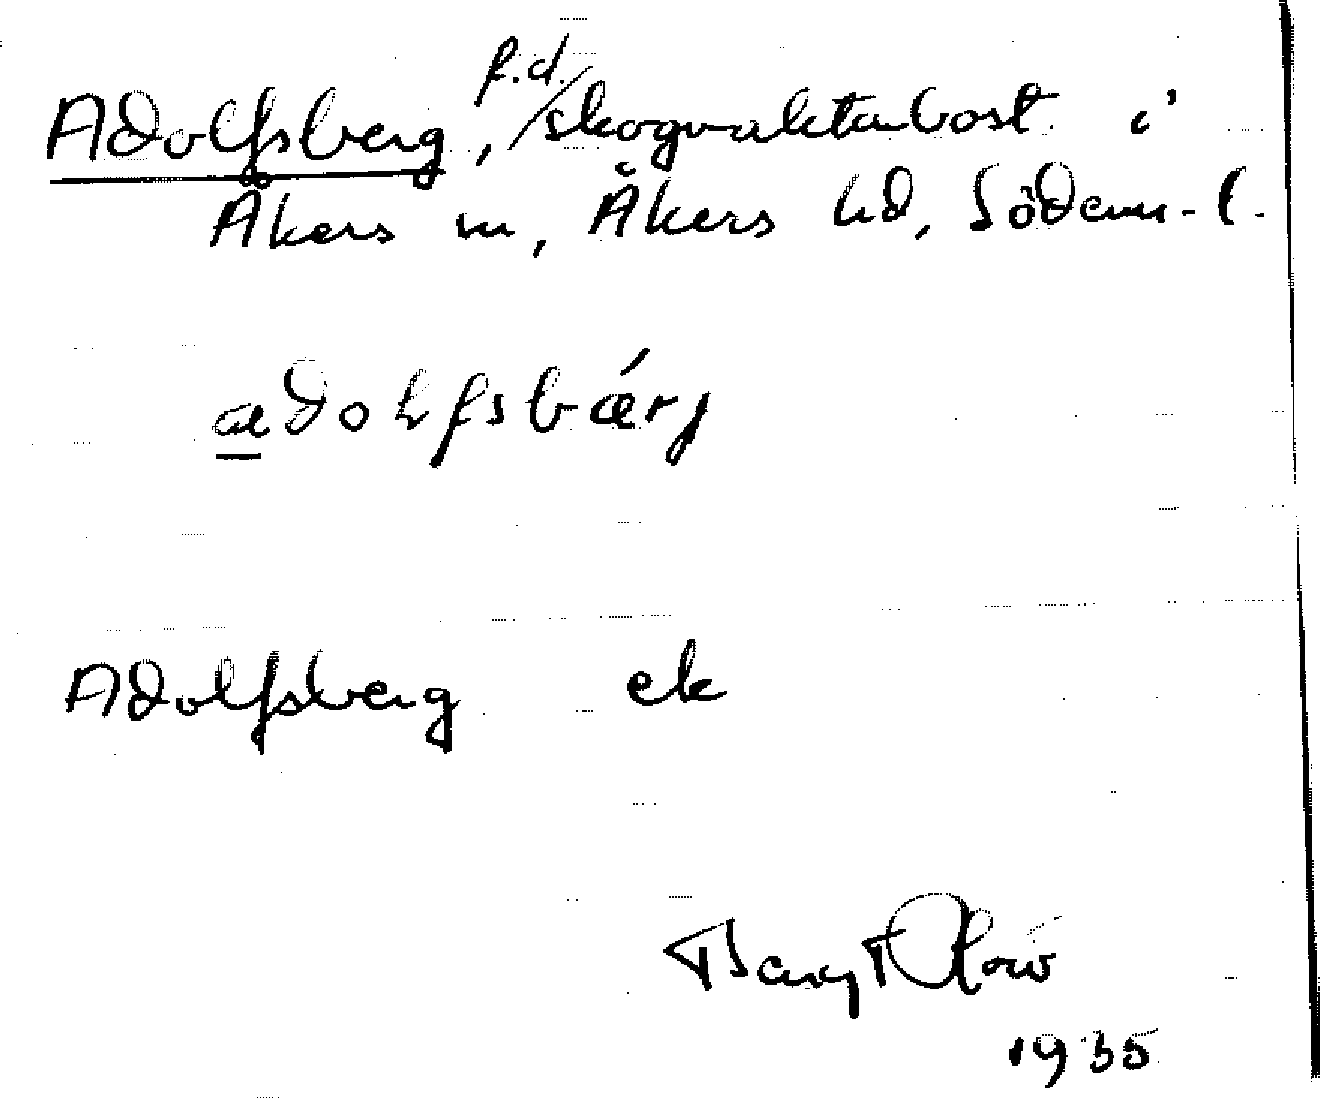 Adolfsberg, f.d. skogvaktarbost. i
Åkers sn, Åkers hd, Söderm. l.
adolfsbärj
Adolfsberg ek
Bengt
1935